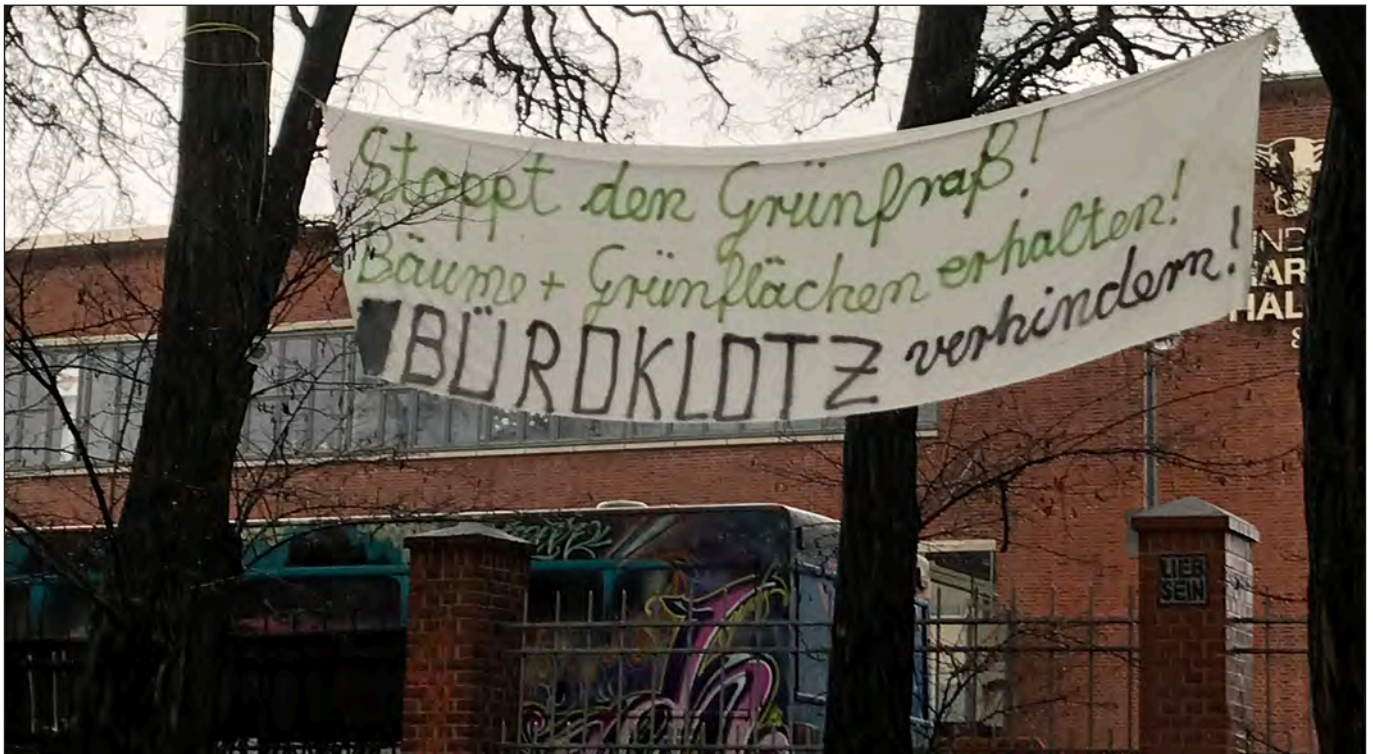 Stoppt den Grünfraß!
Bäume + Grünflächen erhalten!
BÜROKLOTZ verhindern!
LIEB
SEIN